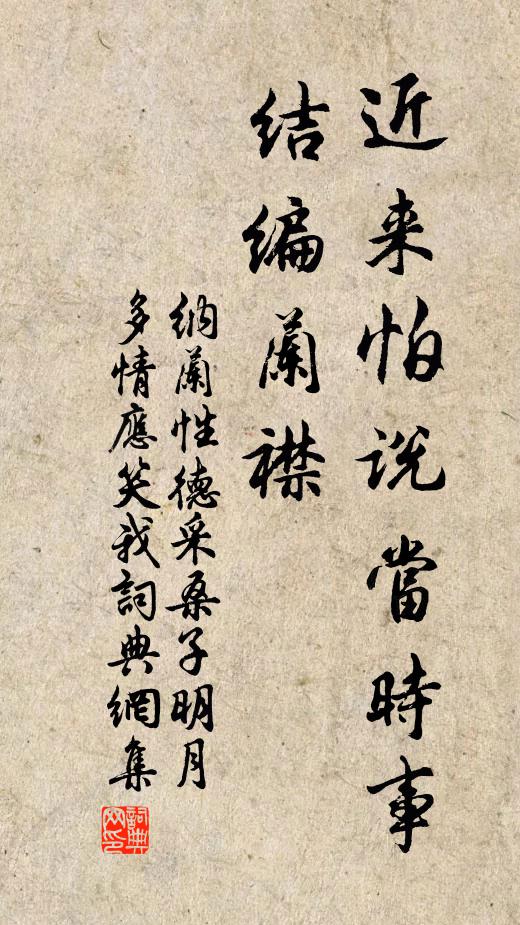 近来怕说當時事
结编蘭襟
纳蘭性德采桑子明月
多情應笑我詞典網集
詞典网印